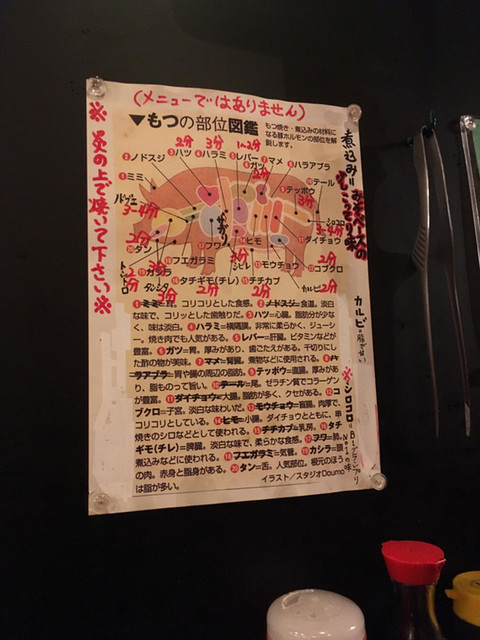 (メニューではありません)
▼もつの部位図鑑
もつ焼き・煮込みの材料に
なる豚ホルモンの部位を解
説します。
※炎の上で焼いて下さい※
2分
3分
1〜2分
②ノドスジ
③ハツ
④ハラミ
⑤レバー
⑦マメ
⑥ガツ
2分
⑧ハラアブラ
①ミミ
⑨テッポウ
3分
⑩テール
シロコロ
3〜4分
3〜4分
⑳タン
⑰フワ
⑬ヒモ
⑪ダイチョウ
⑱フエガラミ
⑲カシラ
⑭モウチョウ
⑫コブクロ
2分
2分
3分
シビレ
タンシタ
⑯タチギモ(チレ)
⑮チチカブ
3分
2分
2分
カルビ2分
①ミミ=耳。コリコリとした食感。②ノドスジ=食道。淡白
な味で、コリッとした歯触りだ。③ハツ=心臓。脂肪分が少な
く、味は淡白。④ハラミ=横隔膜。非常に柔らかく、ジューシ
ー。焼き肉でも人気がある。⑤レバー=肝臓。ビタミンなどが
豊富。⑥ガツ=胃。厚みがあり、歯ごたえがある。千切りにし
た酢の物が美味。⑦マメ=腎臓。煮物などに使用される。⑧ハ
ラアブラ=胃や腸の周辺の脂肪。⑨テッポウ=直腸。厚みがあ
り、脂ものって旨い。⑩テール=尾。ゼラチン質でコラーゲン
が豊富。⑪ダイチョウ=大腸。脂肪が多く、クセがある。⑫コ
ブクロ=子宮。淡白な味わいだ。⑬モウチョウ=盲腸。肉厚で、
コリコリとしている。⑭ヒモ=小腸。ダイチョウとともに、串
焼きのシロなどとして使われる。⑮チチカブ=乳房。⑯タチ
ギモ(チレ)=脾臓。淡白な味で、柔らかな食感。⑰フワ=肺。
煮込みなどに使われる。⑱フエガラミ=気管。⑲カシラ=頭
の肉。赤身と脂身がある。⑳タン=舌。人気部位。根元のほう
は脂が多い。
イラスト/スタジオDoumo
煮込み
カルビ=
※シロコロ=